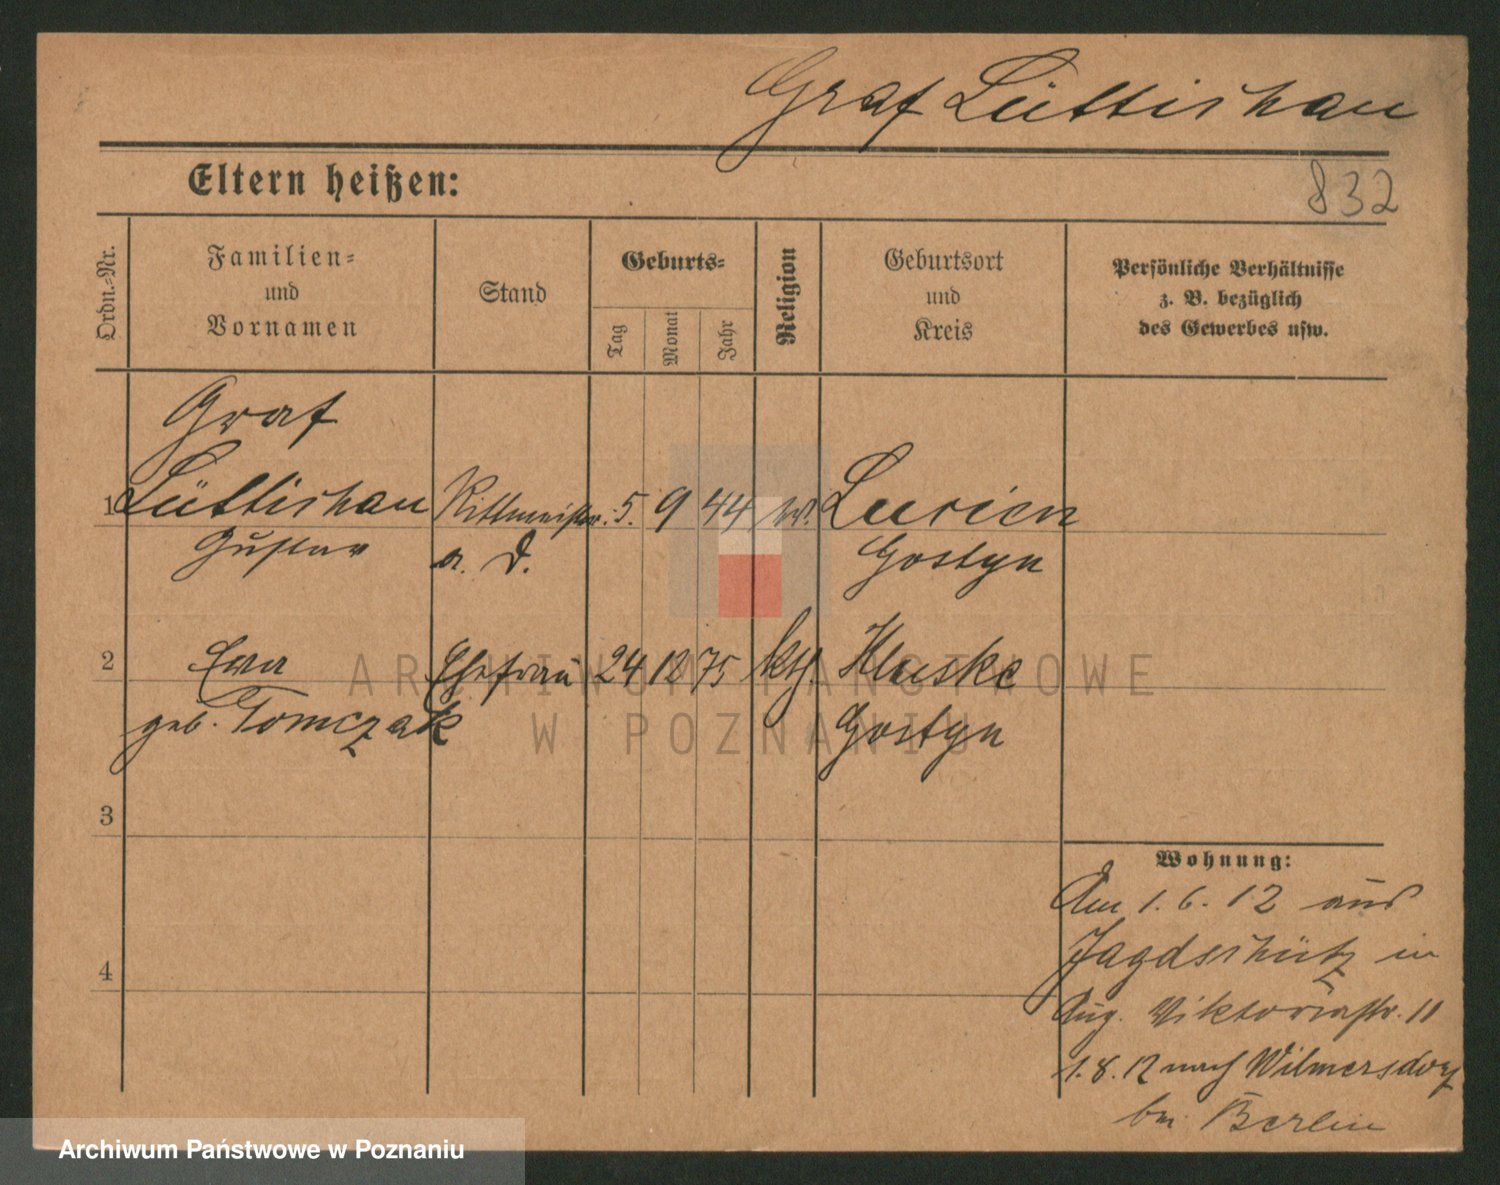 Graf Lüttichau
832
Eltern heißen:
Ordn.-Nr.
Familien-
und
Vornamen
Stand
Geburts-
Tag
Monat
Jahr
Religion
Geburtsort
und
Kreis
Persönliche Verhältnisse
z. B. bezüglich
des Gewerbes usw.
Graf
1 Lüttichau Rittmeister 5. 9 44 Lucien
Gustav a. D. Gostyn
2 Eva Ehefrau 24 12 75 kth. Kluske
geb. Tomczak Gostyn
3
4
Wohnung:
Am 1.6.12 aus
Jagdschütz in
Aug. Viktoriastr. 11
1.8.12 nach Wilmersdorf
bei Berlin
ARCHIWUM PAŃSTWOWE
W POZNANIU
Archiwum Państwowe w Poznaniu